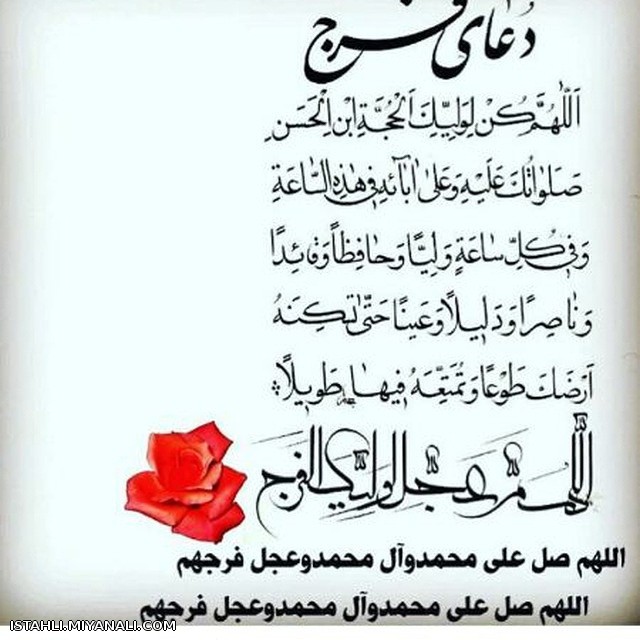 دُعٰای فرج
اَللّٰهُمَّ کُنْ لِوَلِیِّكَ اَلْحُجَّةِ ابْنِ الْحَسَنِ
صَلَواتُكَ عَلَیْهِ وَعَلیٰ ابٰآئِهِ فی هٰذِهِ السّٰاعَةِ
وَفی کُلِّ سٰاعَةٍ وَلِیًّا وَحٰافِظاً وَقٰائِدًا
وَنٰاصِرًا وَدَلیلًا وَعَیْنًا حَتّیٰ تُسْکِنَهُ
اَرْضَكَ طَوْعًا وَتُمَتِّعَهُ فیهٰا طَویلًا
اللّٰهم عجل لولیک الفرج
اللهم صل علی محمدوآل محمدوعجل فرجهم
اللهم صل علی محمدوآل محمدوعجل فرجهم
ISTAHLI.MIYANALI.COM